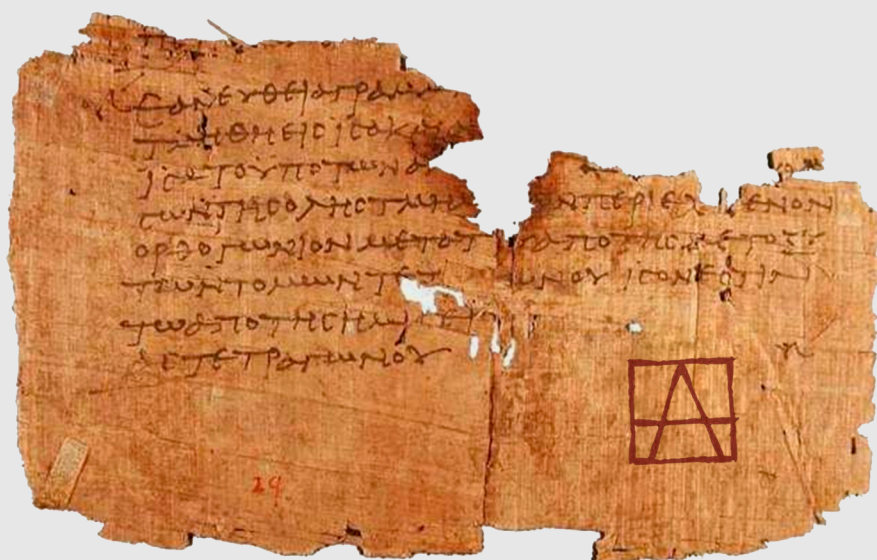 ΕΑΝ ΕΥΘΕΙΑ ΓΡΑΜΜ
ΤΜΗΘΗ ΕΙϹ ΙϹΑ ΚΑΙ
ΙϹΑ ΤΟ ΥΠΟ ΤΩΝ Α
ΤΩΝ ΤΗϹ ΟΛΗϹ ΤΜΗ ΩΝ ΠΕΡΙΕΧ ΜΕΝΟΝ
ΟΡΘΟΓΩΝΙΟΝ ΜΕΤΑ ΤΟΥ ΑΠΟ ΤΗϹ ΜΕΤΟΞΥ
ΤΩΝ ΤΟΜΩΝ ΤΕΤ ΩΝΟΥ ΙϹΟΝ ΕϹΤΙΝ
ΤΩ ΑΠΟ ΤΗϹ ΗΜΙϹΕΙ
ΑϹ ΤΕΤΡΑΓΩΝΟΥ
A
29